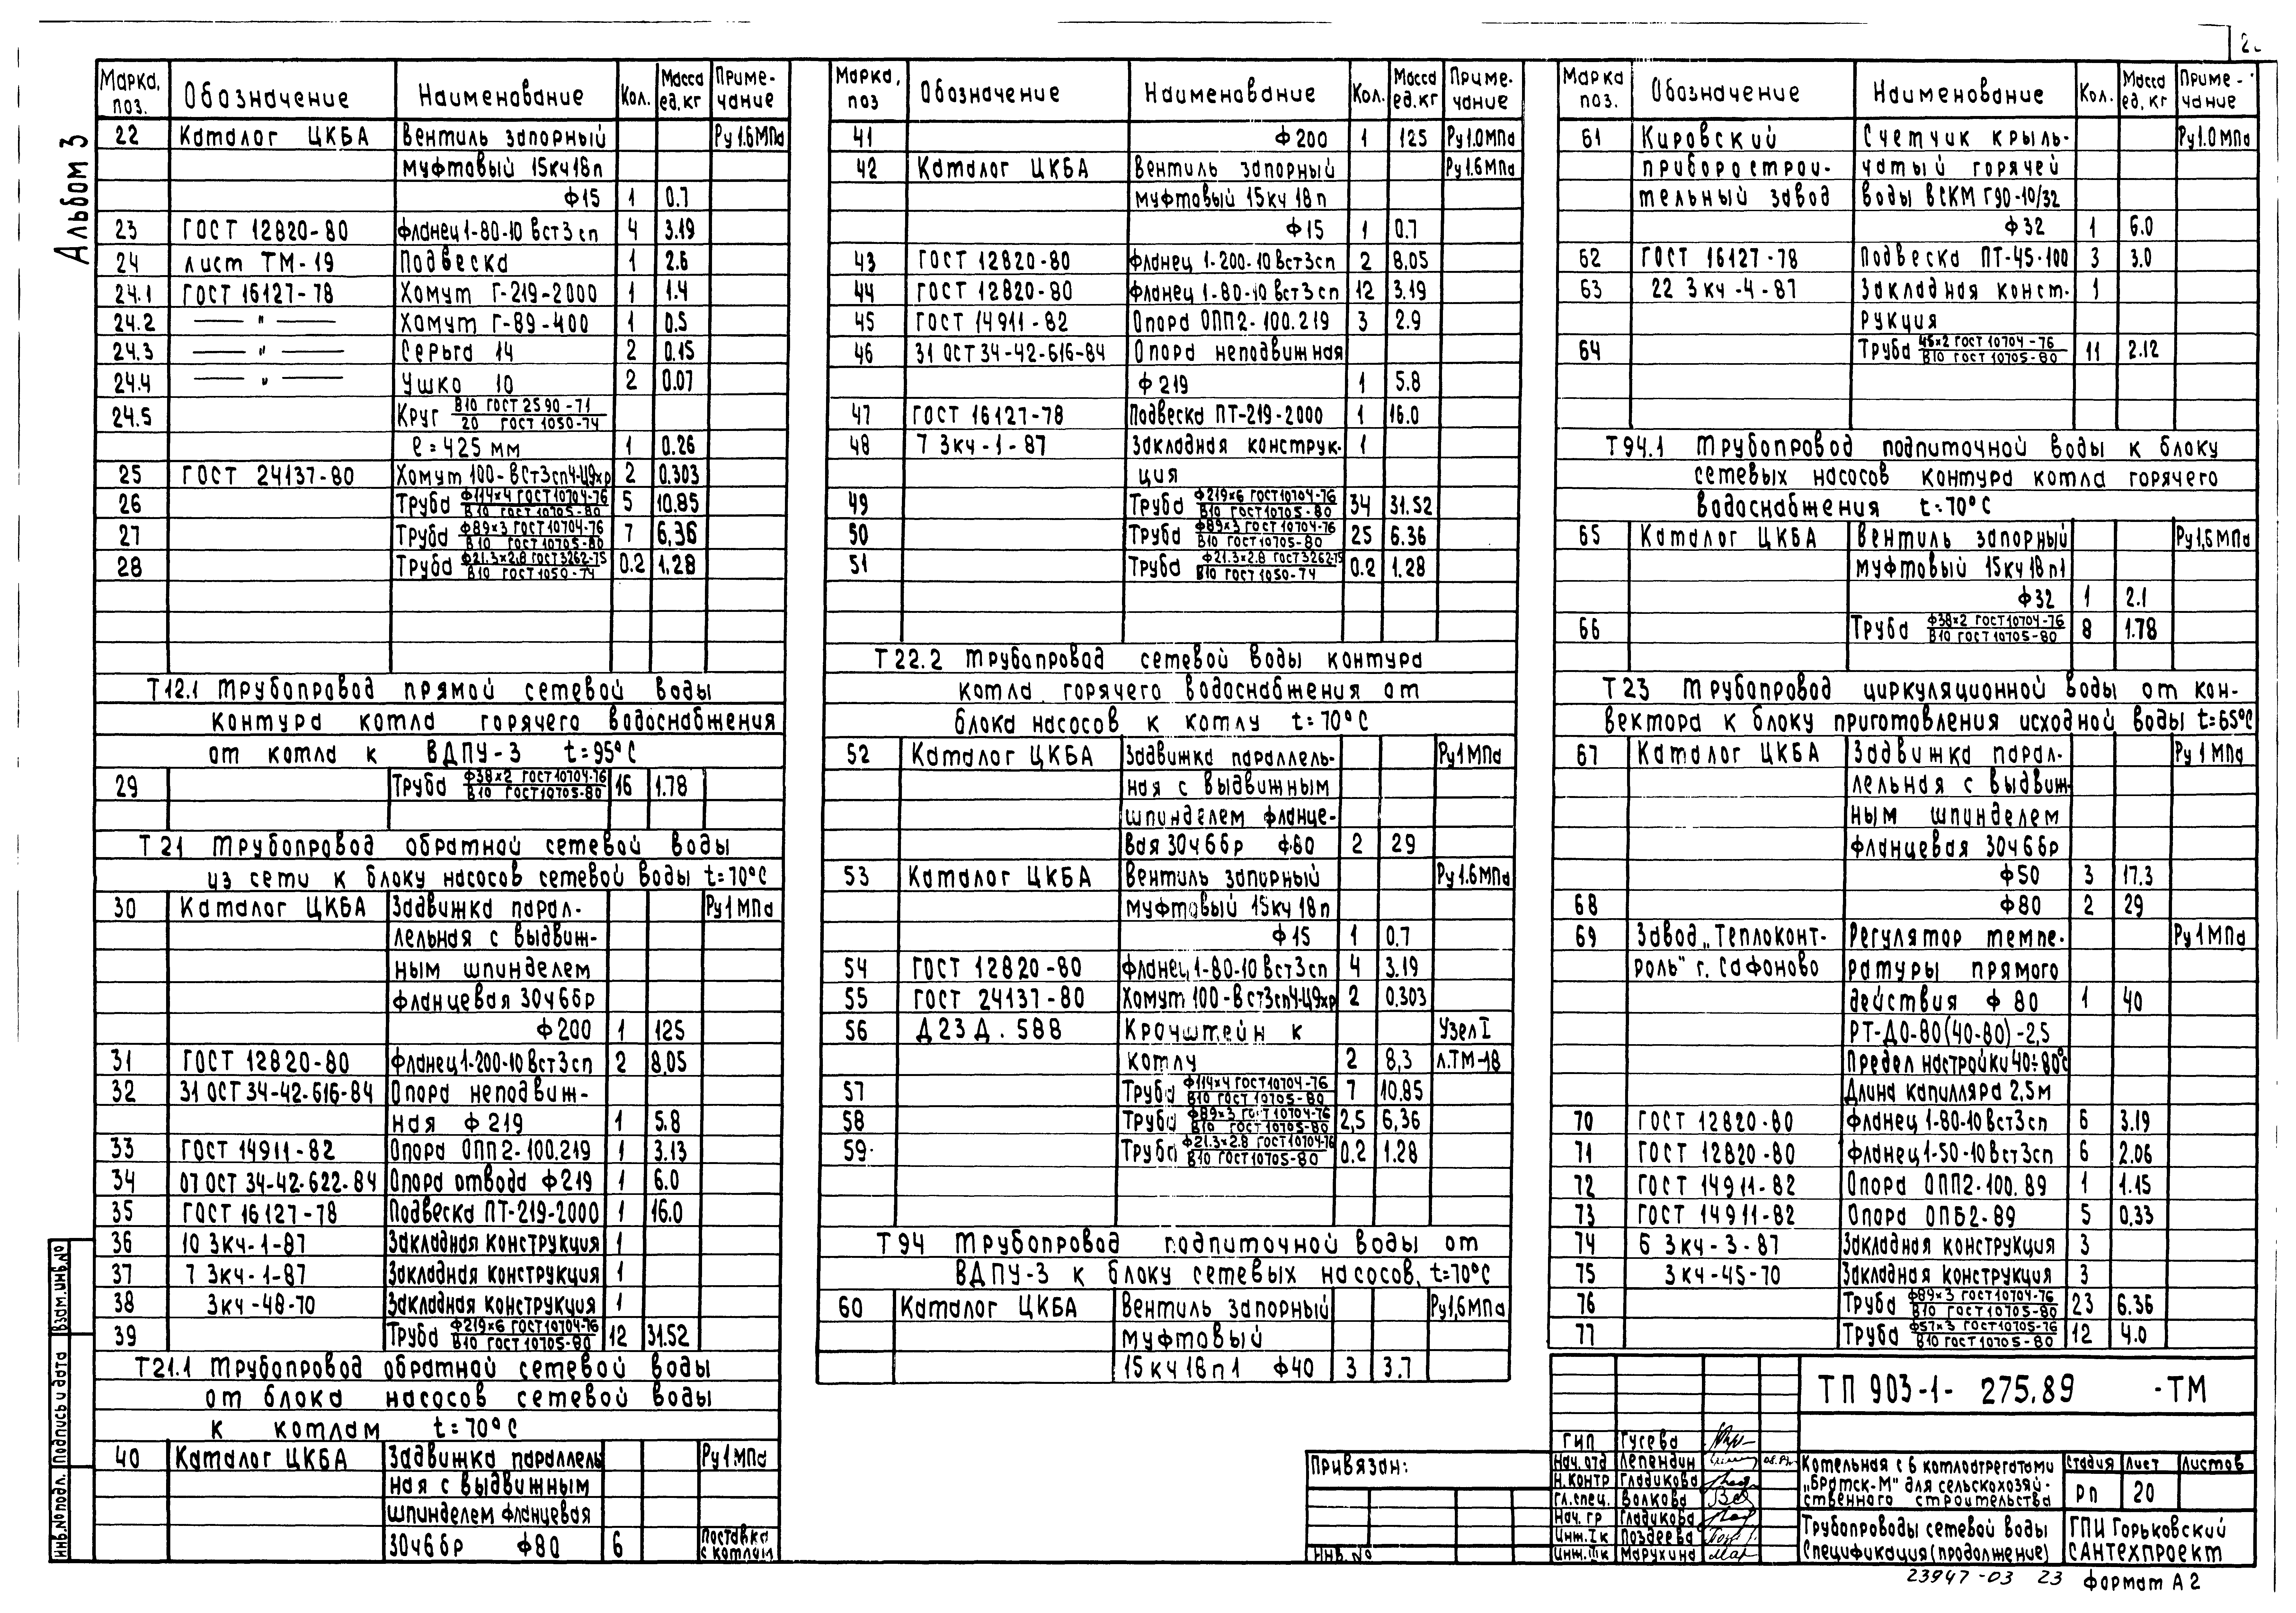 Альбом 3
Марка, поз. Обозначение Наименование Кол. Масса ед.кг Приме-чание
22 Каталог ЦКБА Вентиль запорный Ру1.6МПа
муфтовый 15кч18п
ф15 1 0.7
23 ГОСТ 12820-80 Фланец 1-80-10 Вст3сп 4 3.19
24 лист ТМ-19 Подвеска 1 2.6
24.1 ГОСТ 16127-78 Хомут Г-219-2000 1 1.4
24.2 — " — Хомут Г-89-400 1 0.5
24.3 — " — Серьга 14 2 0.15
24.4 — " — Ушко 10 2 0.07
24.5 Круг В10 ГОСТ 2590-71 / 20 ГОСТ 1050-74
ℓ=425 мм 1 0.26
25 ГОСТ 24137-80 Хомут 100-Вст3сп4-Ц9хр 2 0.303
26 Труба ф114×4 ГОСТ10704-76 / В10 ГОСТ10705-80 5 10.85
27 Труба ф89×3 ГОСТ10704-76 / В10 ГОСТ10705-80 7 6,36
28 Труба ф21.3×2.8 ГОСТ3262-75 / В10 ГОСТ1050-74 0.2 1.28
Т12.1 Трубопровод прямой сетевой воды
контура котла горячего водоснабжения
от котла к ВДПУ-3 t=95°С
29 Труба ф38×2 ГОСТ10704-76 / В10 ГОСТ10705-80 16 1.78
Т21 Трубопровод обратной сетевой воды
из сети к блоку насосов сетевой воды t=70°С
30 Каталог ЦКБА Задвижка парал- Ру1МПа
лельная с выдвиж-
ным шпинделем
фланцевая 30ч6бр
ф200 1 125
31 ГОСТ 12820-80 Фланец 1-200-10 Вст3сп 2 8,05
32 31 ОСТ 34-42-616-84 Опора неподвиж-
ная ф219 1 5.8
33 ГОСТ 14911-82 Опора ОПП2-100.219 1 3.13
34 07 ОСТ 34-42-622-84 Опора отвода ф219 1 6.0
35 ГОСТ 16127-78 Подвеска ПТ-219-2000 1 16.0
36 10 Зкч-1-87 Закладная конструкция 1
37 7 Зкч-1-87 Закладная конструкция 1
38 Зкч-48-70 Закладная конструкция 1
39 Труба ф219×6 ГОСТ10704-76 / В10 ГОСТ10705-80 12 31.52
Т21.1 Трубопровод обратной сетевой воды
от блока насосов сетевой воды
к котлам t=70°С
40 Каталог ЦКБА Задвижка параллель Ру1МПа
ная с выдвижным
шпинделем фланцевая
30ч6бр ф80 6 Поставка с котлам
Марка, поз Обозначение Наименование Кол. Масса ед.кг Приме-чание
41 ф200 1 125 Ру1.0МПа
42 Каталог ЦКБА Вентиль запорный Ру1.6МПа
муфтовый 15кч18п
ф15 1 0.7
43 ГОСТ 12820-80 Фланец 1-200-10 Вст3сп 2 8.05
44 ГОСТ 12820-80 Фланец 1-80-10 Вст3сп 12 3.19
45 ГОСТ 14911-82 Опора ОПП2-100.219 3 2.9
46 31 ОСТ 34-42-616-84 Опора неподвижная
ф219 1 5.8
47 ГОСТ 16127-78 Подвеска ПТ-219-2000 1 16.0
48 7 Зкч-1-87 Закладная конструк- 1
ция
49 Труба ф219×6 ГОСТ10704-76 / В10 ГОСТ10705-80 34 31.52
50 Труба ф89×3 ГОСТ10704-76 / В10 ГОСТ10705-80 25 6.36
51 Труба ф21.3×2.8 ГОСТ3262-75 / В10 ГОСТ1050-74 0.2 1.28
Т22.2 Трубопровод сетевой воды контура
котла горячего водоснабжения от
блока насосов к котлу t=70°С
52 Каталог ЦКБА Задвижка параллель- Ру1МПа
ная с выдвижным
шпинделем фланце-
вая 30ч6бр ф80 2 29
53 Каталог ЦКБА Вентиль запорный Ру1.6МПа
муфтовый 15кч18п
ф15 1 0.7
54 ГОСТ 12820-80 Фланец 1-80-10 Вст3сп 4 3.19
55 ГОСТ 24137-80 Хомут 100-Вст3сп4-Ц9хр 2 0.303
56 Д23Д.588 Кронштейн к Узел I
котлу 2 8,3 л.ТМ-18
57 Труба ф114×4 ГОСТ10704-76 / В10 ГОСТ10705-80 7 10,85
58 Труба ф89×3 ГОСТ10704-76 / В10 ГОСТ10705-80 2,5 6,36
59 Труба ф21.3×2.8 ГОСТ10704-76 / В10 ГОСТ10705-80 0.2 1.28
Т94 Трубопровод подпиточной воды от
ВДПУ-3 к блоку сетевых насосов, t=70°С
60 Каталог ЦКБА Вентиль запорный Ру1,6МПа
муфтовый
15кч18п1 ф40 3 3.7
Марка поз. Обозначение Наименование Кол. Масса ед,кг Приме-чание
61 Кировский Счетчик крыль- Ру1.0МПа
приборострои- чатый горячей
тельный завод воды ВСКМ Г90-10/32
ф32 1 6.0
62 ГОСТ 16127-78 Подвеска ПТ-45-100 3 3.0
63 22 Зкч-4-87 Закладная конст- 1
рукция
64 Труба 45×2 ГОСТ10704-76 / В10 ГОСТ 10705-80 11 2.12
Т94.1 Трубопровод подпиточной воды к блоку
сетевых насосов контура котла горячего
водоснабжения t=70°С
65 Каталог ЦКБА Вентиль запорный Ру1,6МПа
муфтовый 15кч18п1
ф32 1 2.1
66 Труба ф38×2 ГОСТ10704-76 / В10 ГОСТ10705-80 8 1.78
Т23 Трубопровод циркуляционной воды от кон-
вектора к блоку приготовления исходной воды t=65°С
67 Каталог ЦКБА Задвижка парал- Ру1МПа
лельная с выдвиж-
ным шпинделем
фланцевая 30ч6бр
ф50 3 17.3
68 ф80 2 29
69 Завод „Теплоконт- Регулятор темпе- Ру1МПа
роль" г. Сафоново ратуры прямого
действия ф80 1 40
РТ-ДО-80(40-80)-2,5
Предел настройки 40÷80°с
Длина капилляра 2,5м
70 ГОСТ 12820-80 Фланец 1-80-10 Вст3сп 6 3.19
71 ГОСТ 12820-80 Фланец 1-50-10 Вст3сп 6 2.06
72 ГОСТ 14911-82 Опора ОПП2-100.89 1 1.15
73 ГОСТ 14911-82 Опора ОПБ2-89 5 0,33
74 6 Зкч-3-87 Закладная конструкция 3
75 Зкч-45-70 Закладная конструкция 3
76 Труба ф89×3 ГОСТ10704-76 / В10 ГОСТ10705-80 23 6.36
77 Труба ф57×3 ГОСТ10705-76 / В10 ГОСТ10705-80 12 4.0
ТП 903-1-275.89 -ТМ
Привязан:
Инв.№
ГИП Гусева
Нач.отд Лепендин
Н.контр Гладикова
Гл.спец. Волкова
Нач.гр Гладикова
Инж.Iк Поздеева
Инж.IIIк Марухина
Котельная с 6 котлоагрегатами
„Братск-М" для сельскохозяй-
ственного строительства
Стадия Лист Листов
РП 20
Трубопроводы сетевой воды
Спецификация (продолжение)
ГПИ Горьковский
САНТЕХПРОЕКТ
23947-03 23 Формат А2
Взам.инв.№
Подпись и дата
Инв.№ подл.